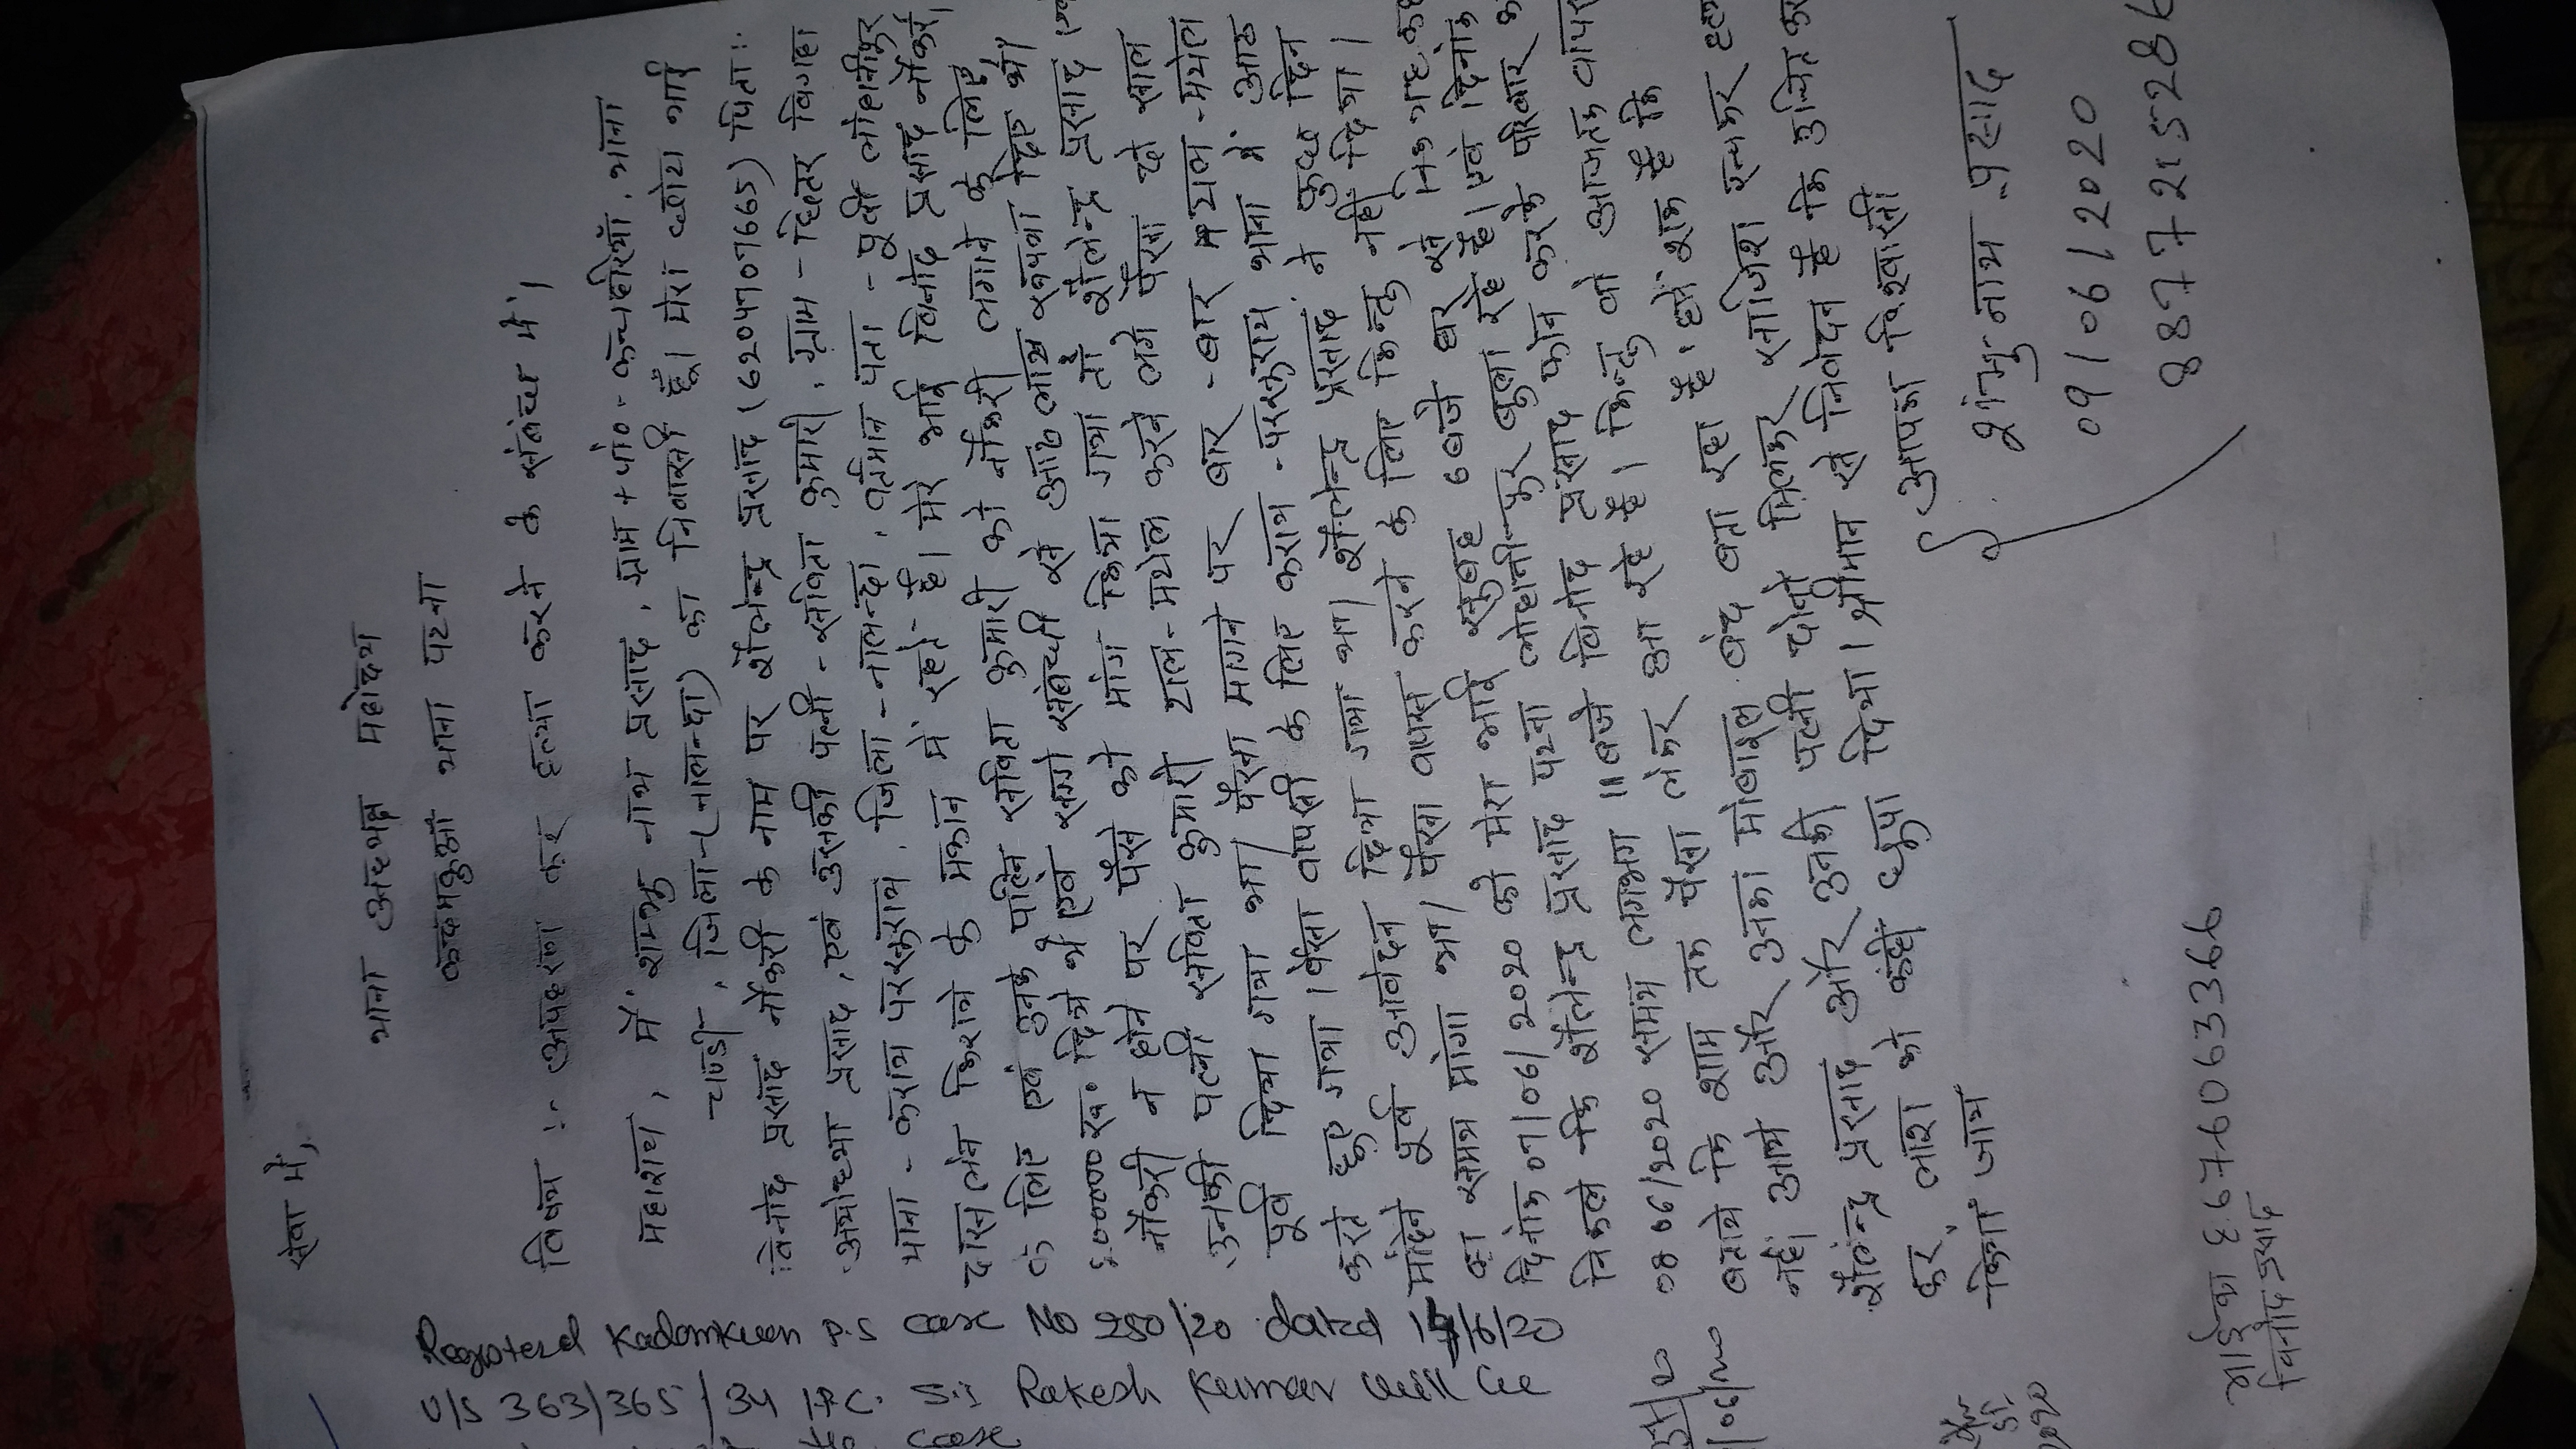 सेवा में,
थाना अध्यक्ष महोदय
कदमकुआँ थाना पटना
विषय :- अपहरण कर हत्या करने के संबंध में।
महाशय, मैं शम्भु नाथ प्रसाद, ग्राम + पो० - कचहरियाँ, थाना
चण्डी, जिला-(नालन्दा) का निवासी हूँ। मेरा छोटा भाई
विनोद प्रसाद नौकरी के नाम पर शैलेन्द्र प्रसाद (6204707665) पिता:-
अयोध्या प्रसाद, एवं उसकी पत्नी - सविता कुमारी, ग्राम - छितर विगहा
थाना - कराय परसुराय, जिला - नालन्दा, वर्तमान पता - पूर्वी लोहानीपुर
दास लेन किराये के मकान में रहते हैं। मेरे भाई विनोद प्रसाद नौकरी
के लिए एवं उनके पत्नि सविता कुमारी को नौकरी लगाने के लिए
00000 रु० दिये थे एवं सगो संबंधी से आठ लाख रूपया दिए थे।
नौकरी न होने पर पैसे को मांग किया गया तो शैलेन्द्र प्रसाद एवं
उनकी पत्नी सविता कुमारी टाल-मटोल करने लगे पैसा दो साल
पूर्व दिया गया था। पैसा मागने पर बार - बार टाल - मटोल
करते हुए गया। पैसा वापसी के लिए कराय - परसुराय थाना में आठ
माहिने पूर्व आवेदन दिया गया था। शैलेन्द्र प्रसाद ने कुछ दिन
का समय मांगा था। पैसा वापस करने के लिए किन्तु नहीं दिया।
दिनांक 07/06/2020 को मेरा भाई सुबह 6 बजे घर से यह कह
निकले कि शैलेन्द्र प्रसाद पटना लोहानीपुर बुला रहे है। एवं दिनांक
08 06/2020 समय लगभग 11 बजे विनोद प्रसाद फोन करके परिवार को
बताये कि शाम तक पैसा लेकर आ रहे है। किन्तु वो आजतक वापस
नहीं आये और उनका मोबाइल बंद बता रहा है। हमें शक है कि
शैलेन्द्र प्रसाद और उनकी पत्नी दोनो मिलकर साजिश रचकर हत्या
कर, लाश को कहीं छुपा दिया। श्रीमान से निवेदन है कि उचित
किया जाय
आपका विश्वासी
शंभु नाथ प्रसाद
09/06/2020
887721528
भाई का 8676063366
विनोद प्रसाद
Registered Kadamkuan P.S Case No /20 dated
U/S 363/365/34 IPC. S.I Rakesh Kumar will
2020